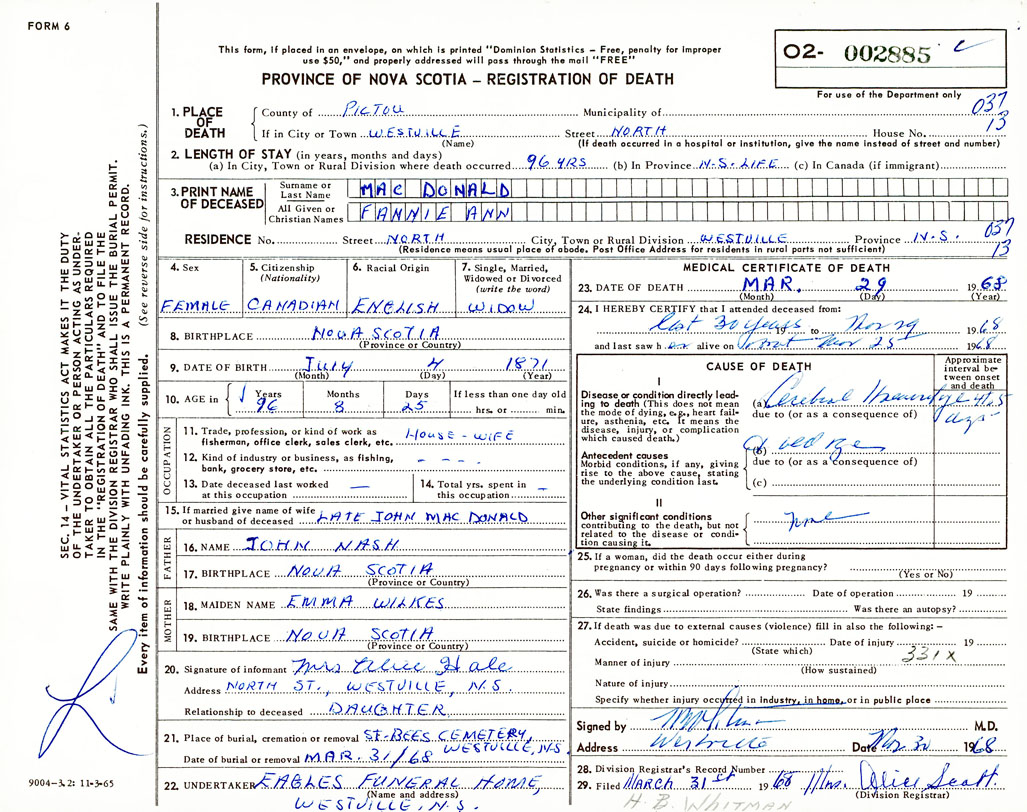 FORM 6
This form, if placed in an envelope, on which is printed "Dominion Statistics – Free, penalty for improper
use $50," and properly addressed will pass through the mail "FREE"
PROVINCE OF NOVA SCOTIA – REGISTRATION OF DEATH
O2- 002885
For use of the Department only
037
13
1. PLACE OF DEATH
County of PICTOU Municipality of
If in City or Town WESTVILLE Street NORTH House No.
(Name) (If death occurred in a hospital or institution, give the name instead of street and number)
2. LENGTH OF STAY (in years, months and days)
(a) In City, Town or Rural Division where death occurred 96 YRS (b) In Province N.S. LIFE (c) In Canada (if immigrant)
3. PRINT NAME OF DECEASED
Surname or Last Name MAC DONALD
All Given or Christian Names FANNIE ANN
RESIDENCE No. Street NORTH City, Town or Rural Division WESTVILLE Province N.S.
(Residence means usual place of abode. Post Office Address for residents in rural parts not sufficient)
037
13
4. Sex
FEMALE
5. Citizenship
(Nationality)
CANADIAN
6. Racial Origin
ENGLISH
7. Single, Married,
Widowed or Divorced
(write the word)
WIDOW
8. BIRTHPLACE NOVA SCOTIA
(Province or Country)
9. DATE OF BIRTH JULY 4 1871
(Month) (Day) (Year)
10. AGE in Years 96 Months 8 Days 25 If less than one day old
hrs. or min.
OCCUPATION
11. Trade, profession, or kind of work as HOUSE-WIFE
fisherman, office clerk, sales clerk, etc.
12. Kind of industry or business, as fishing, - - - -
bank, grocery store, etc.
13. Date deceased last worked —
at this occupation
14. Total yrs. spent in –
this occupation
15. If married give name of wife
or husband of deceased LATE JOHN MAC DONALD
FATHER
16. NAME JOHN NASH
17. BIRTHPLACE NOVA SCOTIA
(Province or Country)
MOTHER
18. MAIDEN NAME EMMA WILKES
19. BIRTHPLACE NOVA SCOTIA
(Province or Country)
20. Signature of informant Mrs Hale
Address NORTH ST., WESTVILLE, N.S.
Relationship to deceased DAUGHTER
21. Place of burial, cremation or removal ST-BEES CEMETERY,
WESTVILLE, N.S.
Date of burial or removal MAR. 31/68
22. UNDERTAKER EAGLES FUNERAL HOME,
(Name and address)
WESTVILLE, N.S.
MEDICAL CERTIFICATE OF DEATH
23. DATE OF DEATH MAR. 29 1968
(Month) (Day) (Year)
24. I HEREBY CERTIFY that I attended deceased from:
last 30 years 19 to Mar 29 1968
and last saw h er alive on Mar 25th 1968
CAUSE OF DEATH
Approximate
interval be-
tween onset
and death
I
Disease or condition directly lead-
ing to death (This does not mean
the mode of dying, e.g., heart fail-
ure, asthenia, etc. It means the
disease, injury, or complication
which caused death.)
(a) Cerebral
days
due to (or as a consequence of)
Antecedent causes
Morbid conditions, if any, giving
rise to the above cause, stating
the underlying condition last.
(b) old age
due to (or as a consequence of)
(c)
II
Other significant conditions
contributing to the death, but not
related to the disease or condi-
tion causing it.
none
25. If a woman, did the death occur either during
pregnancy or within 90 days following pregnancy?
(Yes or No)
26. Was there a surgical operation? Date of operation 19
State findings Was there an autopsy?
27. If death was due to external causes (violence) fill in also the following: –
Accident, suicide or homicide? Date of injury 19
(State which)
331X
Manner of injury
(How sustained)
Nature of injury
Specify whether injury occurred in industry, in home, or in public place
Signed by M.D.
Address Westville Date Mar 30 1968
28. Division Registrar's Record Number
29. Filed MARCH 31st 1968 Mrs. Alice Scott
(Division Registrar)
H.B. WHITMAN
SEC. 14 – VITAL STATISTICS ACT MAKES IT THE DUTY
OF THE UNDERTAKER OR PERSON ACTING AS UNDER-
TAKER TO OBTAIN ALL THE PARTICULARS REQUIRED
IN THE "REGISTRATION OF DEATH" AND TO FILE THE
SAME WITH THE DIVISION REGISTRAR WHO SHALL ISSUE THE BURIAL PERMIT.
WRITE PLAINLY WITH UNFADING INK. THIS IS A PERMANENT RECORD.
Every item of information should be carefully supplied. (See reverse side for instructions.)
9004–3.2: 11-3-65